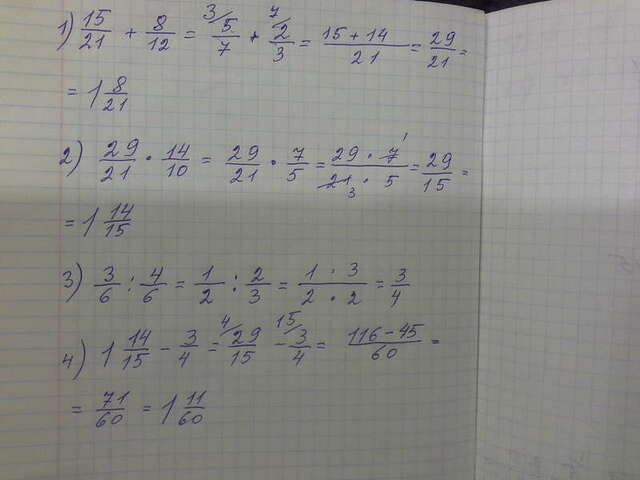 1) 15/21 + 8/12 = 3/ 5/7 + 7/ 2/3 = (15 + 14)/21 = 29/21 =
= 1 8/21
2) 29/21 · 14/10 = 29/21 · 7/5 = (29 · 7 1)/(21 3 · 5) = 29/15 =
= 1 14/15
3) 3/6 : 4/6 = 1/2 : 2/3 = (1 · 3)/(2 · 2) = 3/4
4) 1 14/15 - 3/4 = 4/ 29/15 - 15/ 3/4 = (116 - 45)/60 =
= 71/60 = 1 11/60